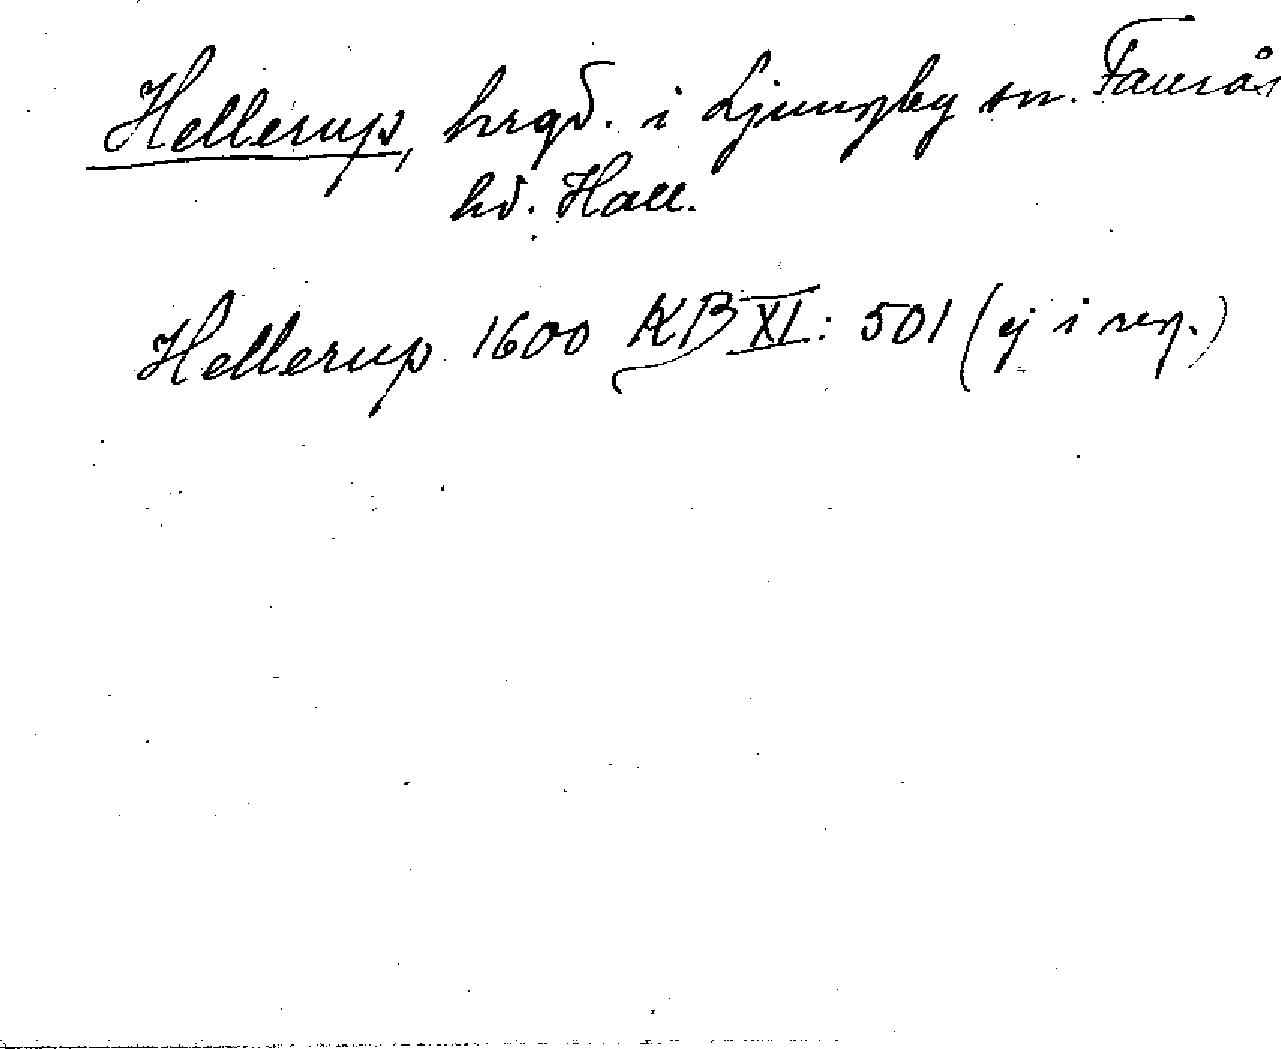 Hellerup, hrgd. i Ljungby sn. Faurås
hd. Hall.
Hellerup 1600 KB XI: 501 (ej i reg.)